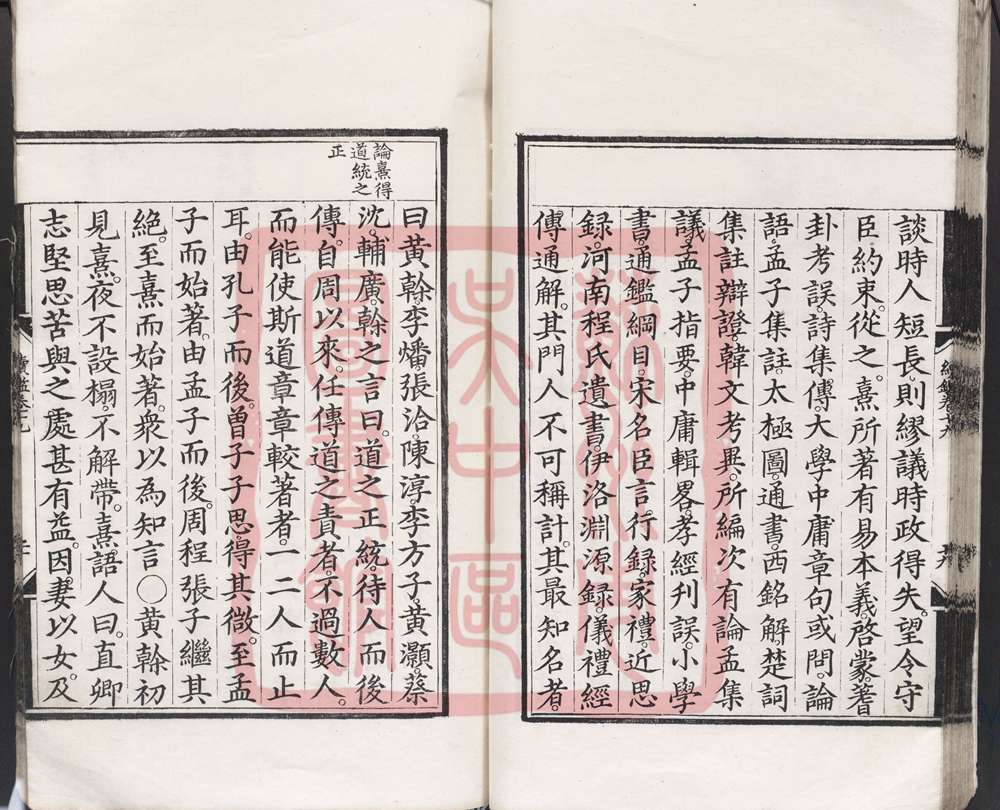 談時人短長。則繆議時政得失。望令守
臣約束。從之。熹所著有易本義。啓蒙。蓍
卦考誤。詩集傳。大學中庸章句或問。論
語孟子集註。太極圖。通書。西銘解楚詞
集註辯證。韓文考異。所編次有論孟集
議。孟子指要。中庸輯畧。孝經刊誤。小學
書。通鑑綱目。宋名臣言行錄。家禮。近思
錄。河南程氏遺書。伊洛淵源錄。儀禮經
傳通解。其門人不可稱計。其最知名者。
論熹得
道統之
正
曰黃榦。李燔。張洽。陳淳。李方子。黃灝。蔡
沈。輔廣。榦之言曰。道之正統。待人而後
傳。自周以來。任傳道之責者。不過數人。
而能使斯道章章較著者。一二人而止
耳。由孔子而後。曾子子思。得其微。至孟
子而始著。由孟子而後。周程張子繼其
絕。至熹而始著。衆以為知言○黃榦初
見熹。夜不設榻。不解帶。熹語人曰。直卿
志堅思苦。與之處甚有益。因妻以女。及